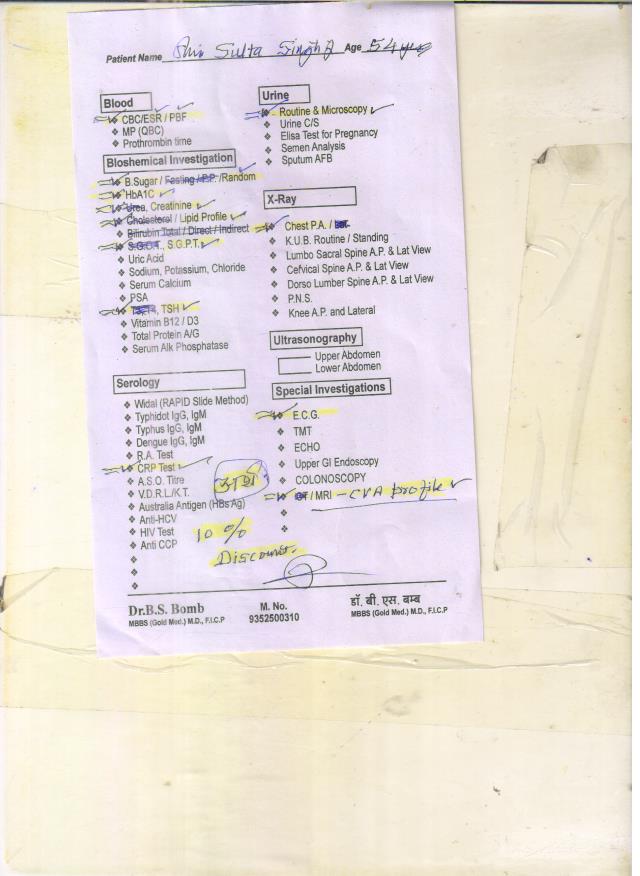 Patient Name Shri Sulta Singh Ji Age 54 yrs
Blood
❖ CBC/ESR / PBF
❖ MP (QBC)
❖ Prothrombin time
Bioshemical Investigation
❖ B.Sugar / Fasting / P.P. /Random
❖ HbA1C
❖ Urea, Creatinine
❖ Cholesterol / Lipid Profile
❖ Bilirubin Total / Direct / Indirect
❖ S.G.O.T., S.G.P.T.
❖ Uric Acid
❖ Sodium, Potassium, Chloride
❖ Serum Calcium
❖ PSA
❖ T3,T4, TSH
❖ Vitamin B12 / D3
❖ Total Protein A/G
❖ Serum Alk Phosphatase
Serology
❖ Widal (RAPID Slide Method)
❖ Typhidot IgG, IgM
❖ Typhus IgG, IgM
❖ Dengue IgG, IgM
❖ R.A. Test
❖ CRP Test
❖ A.S.O. Titre
❖ V.D.R.L/K.T.
❖ Australia Antigen (HBs Ag)
❖ Anti-HCV
❖ HIV Test
❖ Anti CCP
10 %
Discount.
Urine
❖ Routine & Microscopy
❖ Urine C/S
❖ Elisa Test for Pregnancy
❖ Semen Analysis
❖ Sputum AFB
X-Ray
❖ Chest P.A. /
❖ K.U.B. Routine / Standing
❖ Lumbo Sacral Spine A.P. & Lat View
❖ Cefvical Spine A.P. & Lat View
❖ Dorso Lumber Spine A.P. & Lat View
❖ P.N.S.
❖ Knee A.P. and Lateral
Ultrasonography
Upper Abdomen
Lower Abdomen
Special Investigations
❖ E.C.G.
❖ TMT
❖ ECHO
❖ Upper GI Endoscopy
❖ COLONOSCOPY
❖ / MRI - CVA profile
Dr.B.S. Bomb
MBBS (Gold Med.) M.D., F.I.C.P
M. No.
9352500310
डॉ. बी. एस. बम्ब
MBBS (Gold Med.) M.D., F.I.C.P